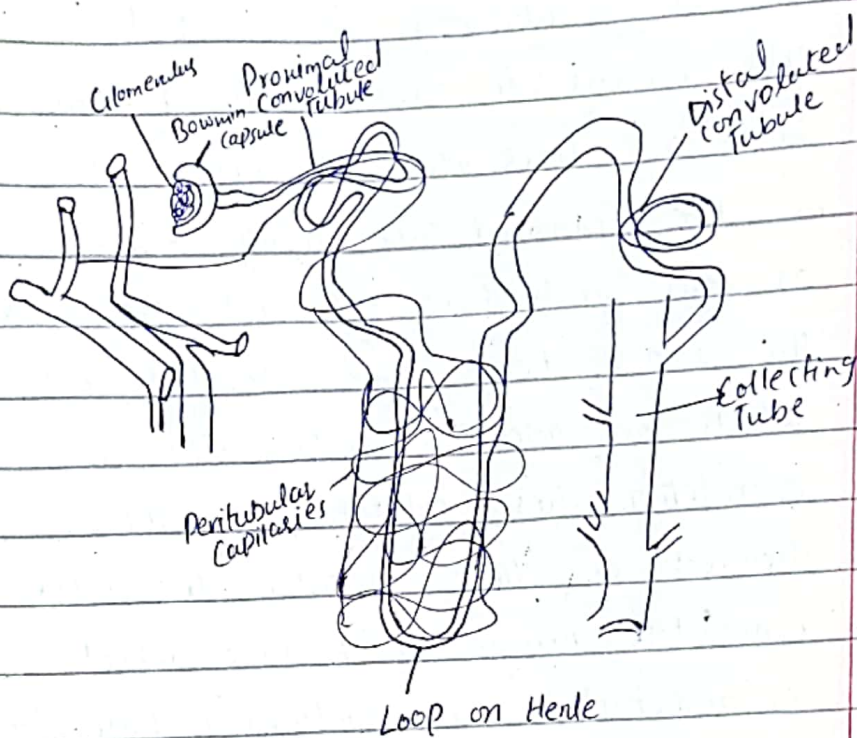 Glomerulus
Bowmin
capsule
Proximal
Convoluted
Tubule
Distal
convoluted
Tubule
Collecting
Tube
Peritubular
Capilaries
Loop on Henle